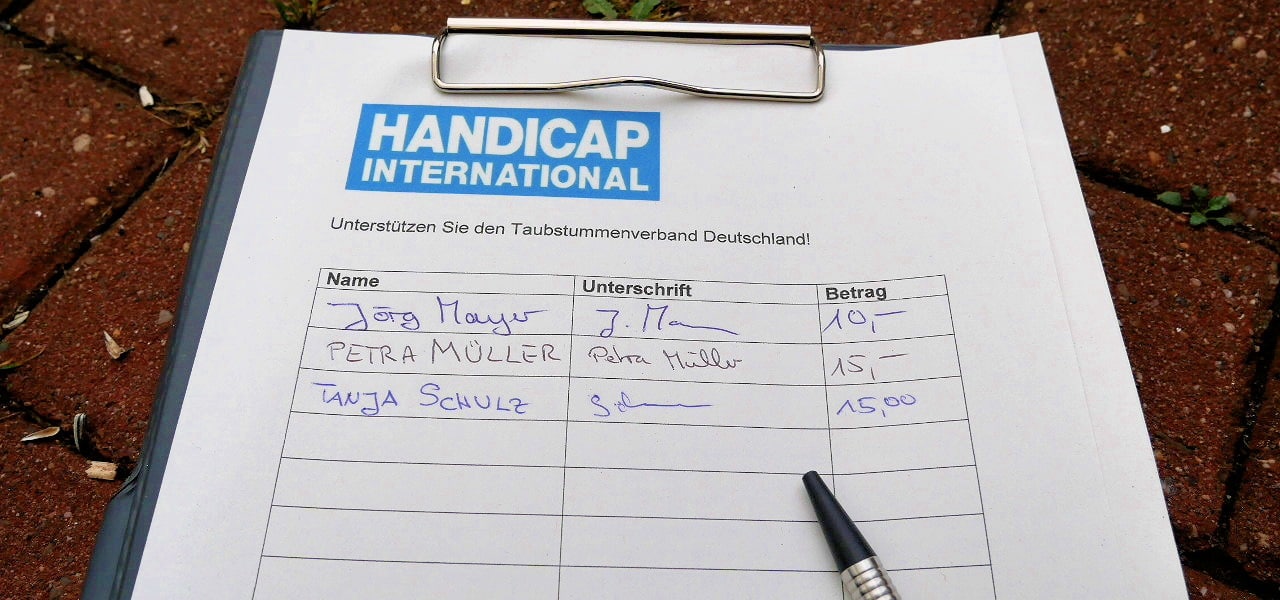 HANDICAP
INTERNATIONAL
Unterstützen Sie den Taubstummenverband Deutschland!
Name Unterschrift Betrag
Jörg Mayer J. Ma 10,–
PETRA MÜLLER Petra Müller 15,–
TANJA SCHULZ 15,00